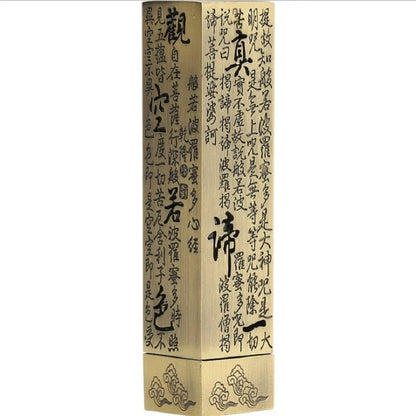 般若波羅蜜多心經
觀自在菩薩行深般若波羅蜜多時照
見五蘊皆空度一切苦厄舍利子色不
異空空不異色色即是空空即是色受
提故知般若波羅蜜多是大神咒是大
明咒是無上咒是無等等咒能除一切
苦真實不虛故說般若波羅蜜多咒即
說咒曰揭諦揭諦波羅揭諦波羅僧揭
諦菩提娑婆訶